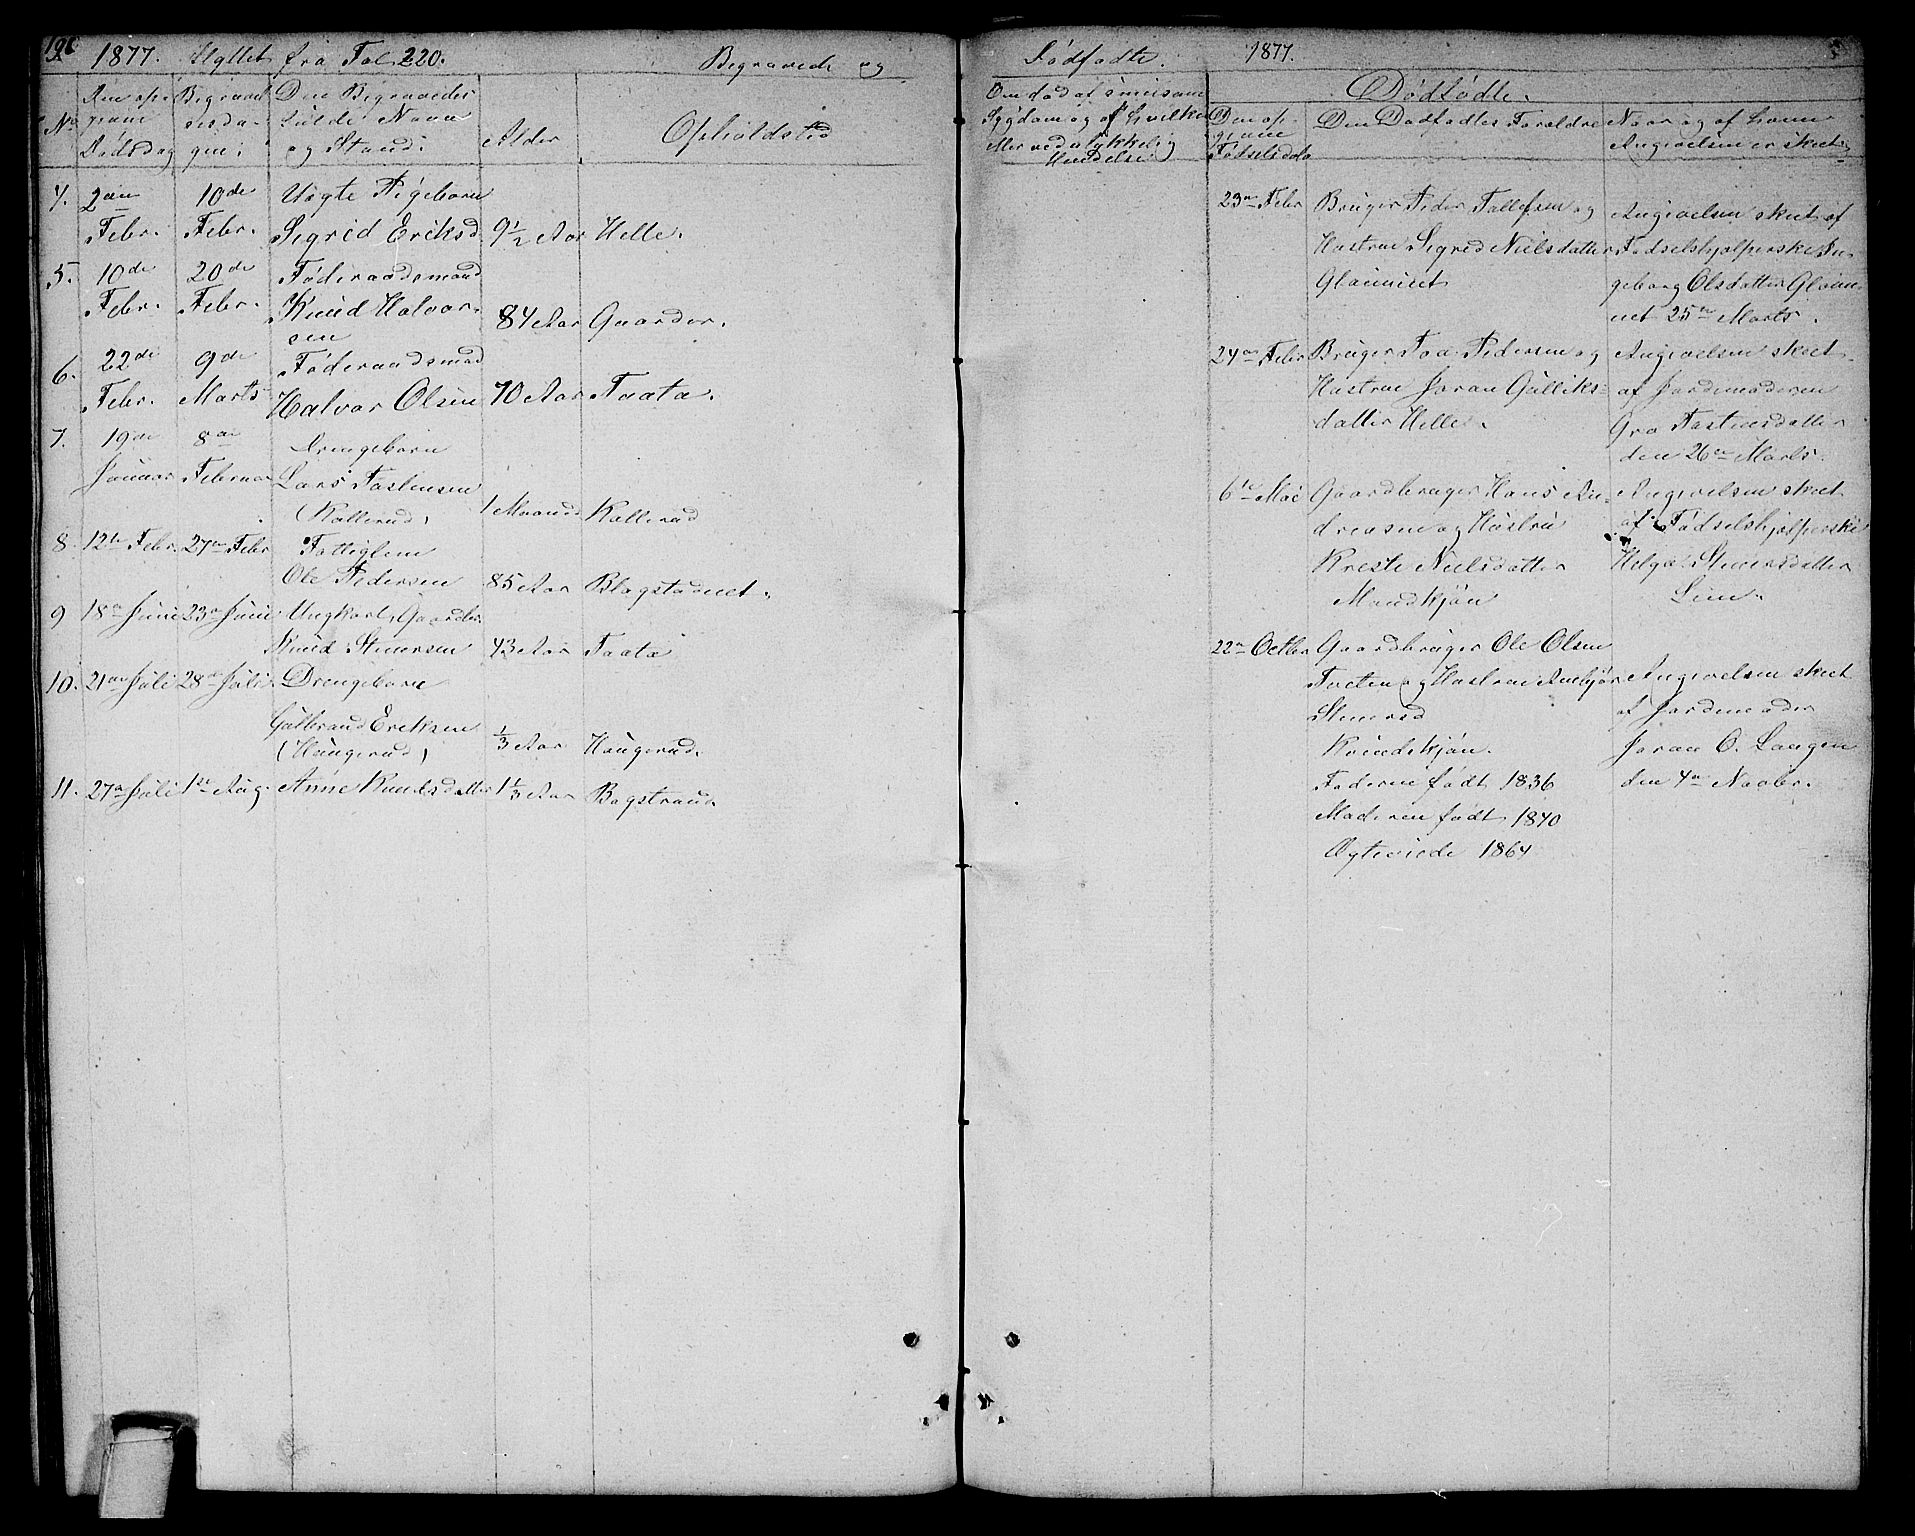 1877. Flyttet fra Fol 220. Begravede og
No
Den op-
givne
Dødsdag
Begravel
sesda-
gen:
Den Begravedes
fulde Navn
og Stand:
Alder
Opholdsted
4. 2den Febr. 10de Febr.
Uægte Pigebarn
Sigrid Eriksd 9 1/2 Aar Helle.
5. 10de Febr. 20de Febr.
Føderaadsmand
Knud Halvor-
sen 84 Aar Gaarder.
6. 22de Febr. 9de Marts
Føderaadsmad
Halvor Olsen 70 Aar Taata.
7. 19de Januar 8de Februar
Drengebarn
Lars Tostensen
(Kollerud) 1 Maaned Kollerud
8. 12te Febr. 27de Febr
Fattiglem
Ole Pedersen 85 Aar Blagstadnet.
9 18de Juni 23de Juni Ungkarl, Gaardbr.
Knud Stenersen 43 Aar Taata
10. 21de Juli 28de Juli. Drengebarn
Gulbrand Eriksen
(Haugerud) 1/3 Aar Haugerud.
11. 27de Juli 1ste Aug. Anne Knudsdatter 1 1/3 Aar Bagstrand.
Dødfødte. 1877.
Om død af smitsom
Sygdom og af hvilken
eller ved ulykkelig
Hendelse:
Dødfødte.
Den op-
givne
Fødselsdato
Den Dødfødtes Forældre
Naar og af hvem
Angivelsen er skeet:
23de Febr
Bruger Peder Tollefsen og
Hustrue Sigred Nielsdatter
Glaimnet
Angivelsen skeet af
Fødselshjælperske In-
geborg Olsdatter Glaim-
net 25de Marts.
24de Febr
Bruger Tov Pedersen og
Hustrue Joran Gulliks-
datter Helle.
Angivelsen skeet
af Jordemoderen
Gro Tostensdatter
den 26de Marts.
6te Mai
Gaardbruger Hans An-
dreasen og Hustru
Kresti Nielsdatter
Mandkjøn
Angivelsen skeet
af Fødselshjælperske
Helga Stenersdatter
Lim.
22de Octbr
Gaardbruger Ole Olsen
Tveten og Hustrue Anebjør
Stenersd
Kvindekjøn.
Faderen født 1836
Moderen født 1840
Ægteviede 1864
Angivelsen skeet
af Jordemoder
Joran O. Langen
den 4de Novbr.